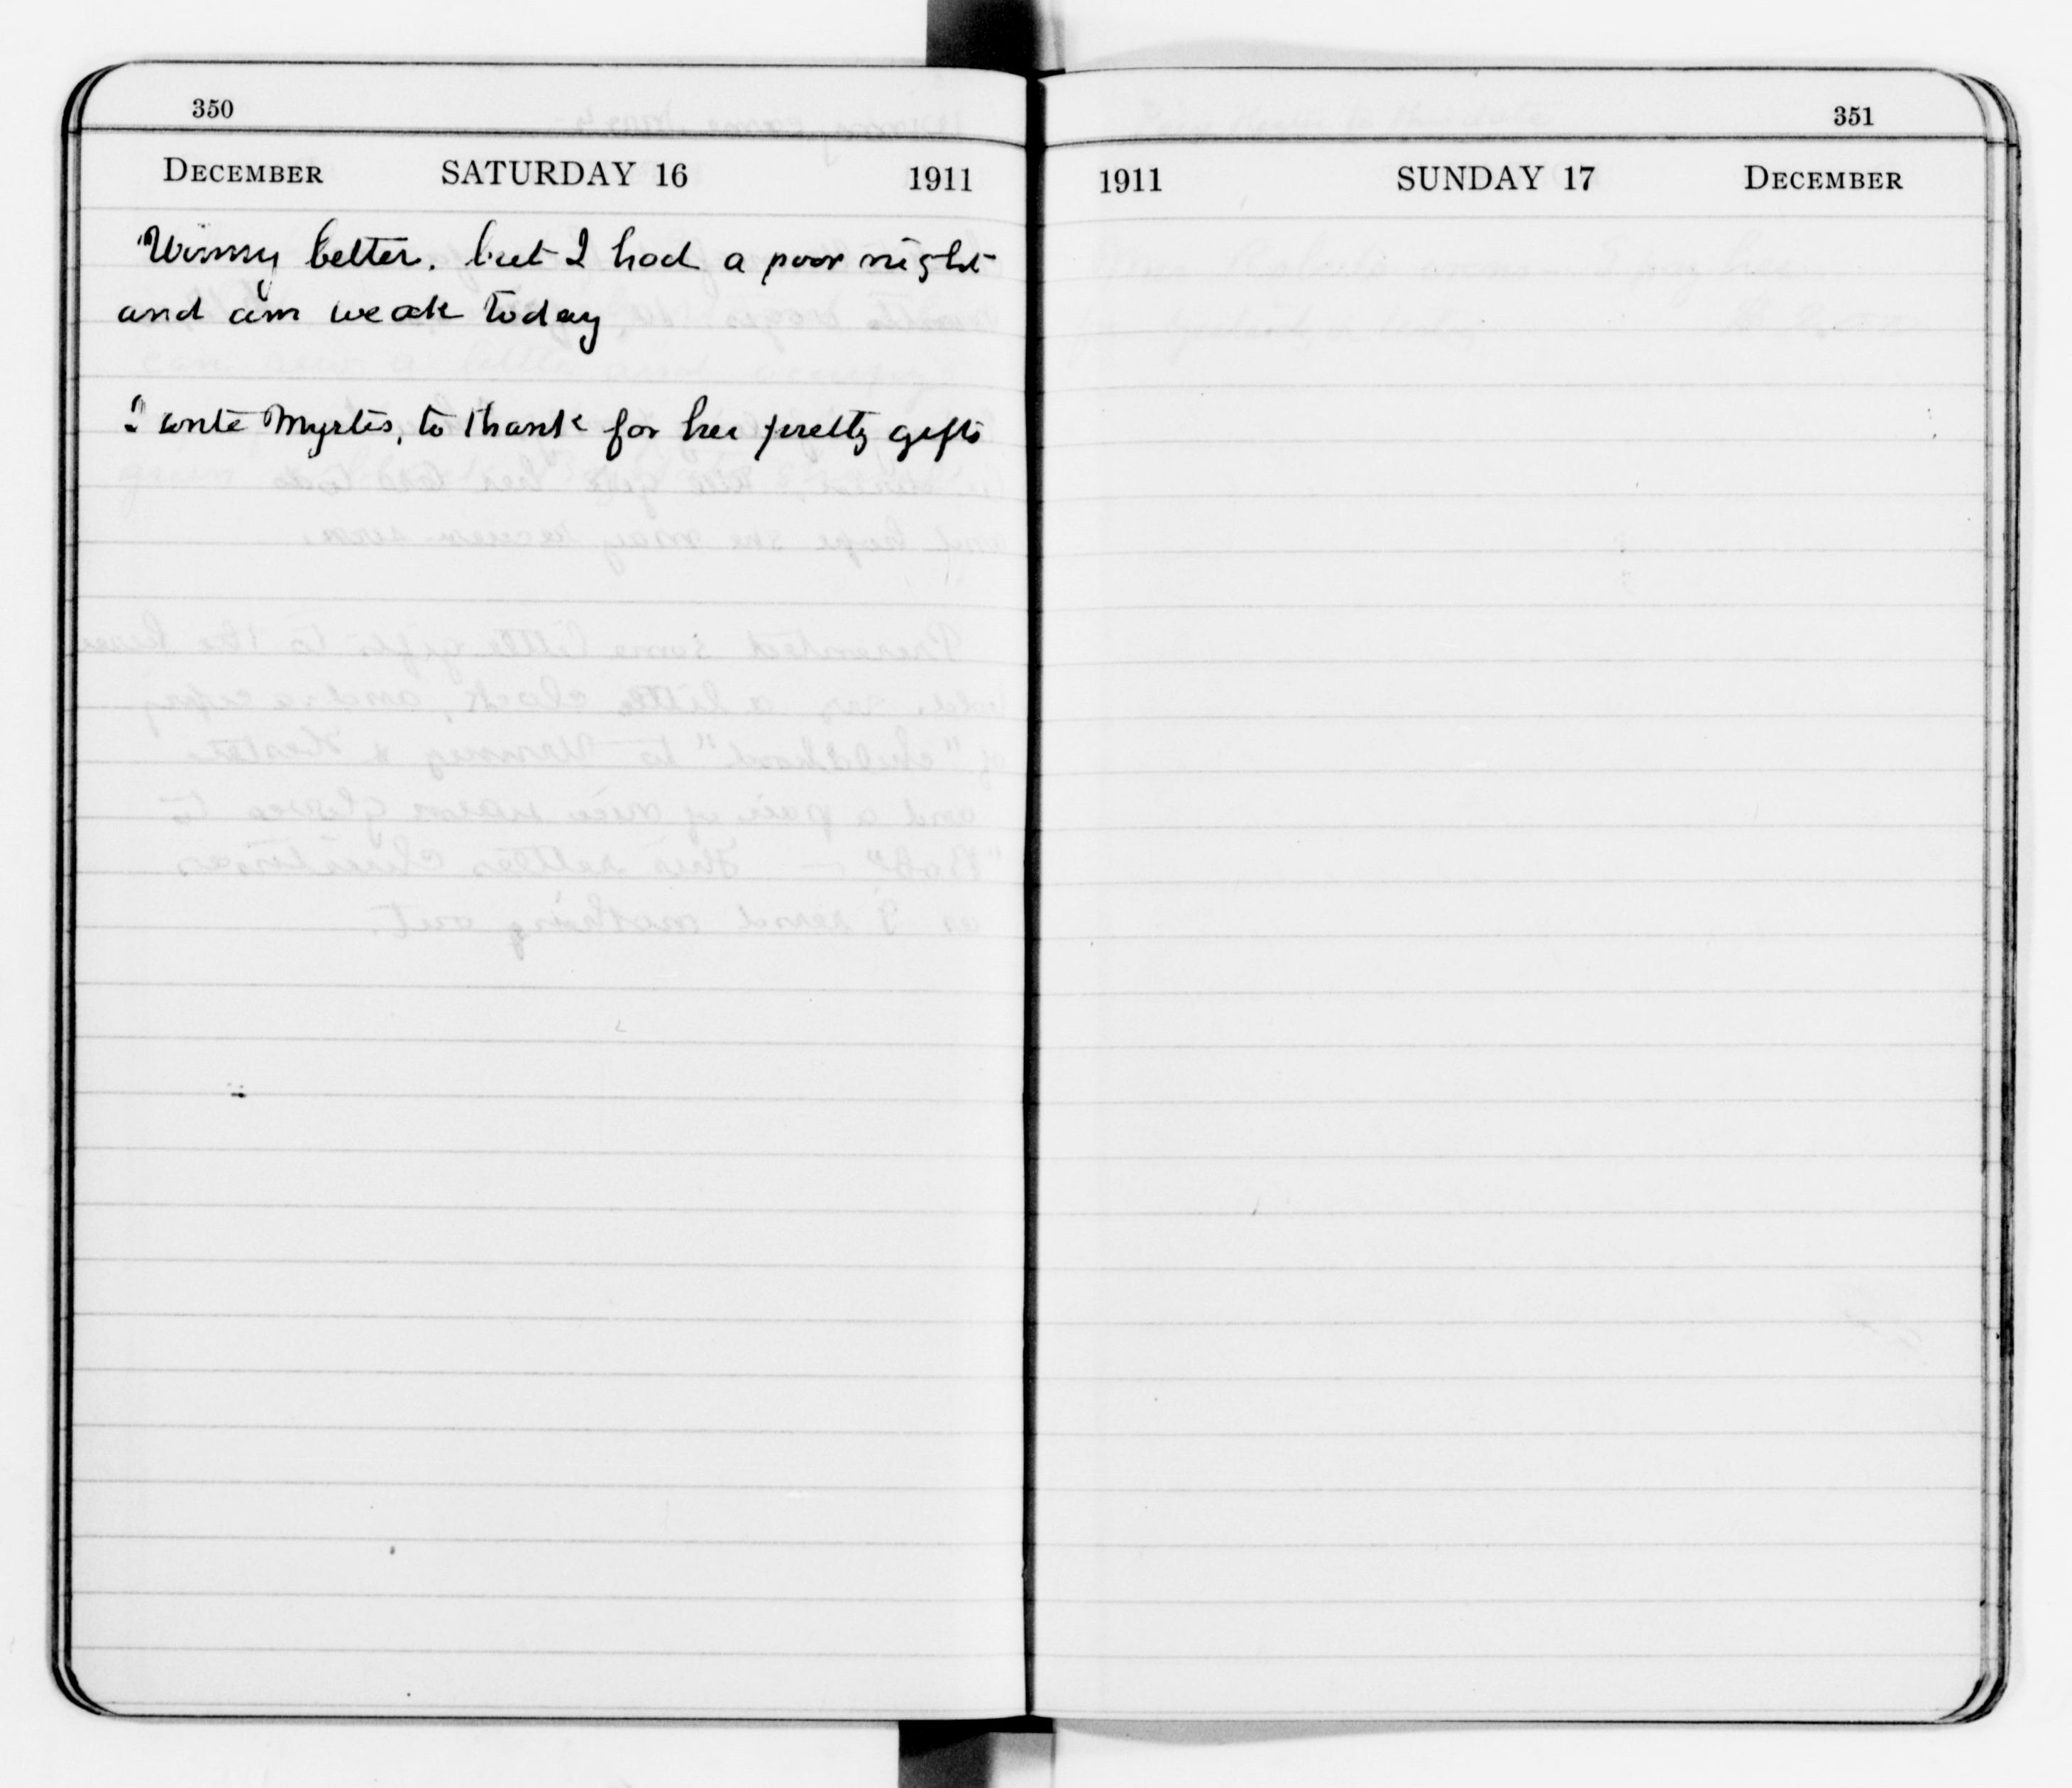 350
DECEMBER SATURDAY 16 1911
Winny better. but I had a poor night
and am weak today
I write Myrtis, to thank for her pretty gifts
351
1911 SUNDAY 17 DECEMBER